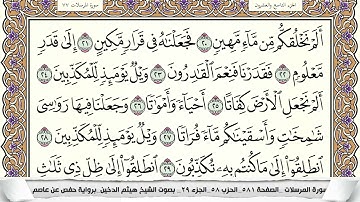 الجزء التاسع والعشرون
سورة المرسلات ٧٧
أَلَمْ نَخْلُقكُّم مِّن مَّآءٍ مَّهِينٍ ٢٠ فَجَعَلْنَٰهُ فِى قَرَارٍ مَّكِينٍ ٢١ إِلَىٰ قَدَرٍ
مَّعْلُومٍ ٢٢ فَقَدَرْنَا فَنِعْمَ ٱلْقَٰدِرُونَ ٢٣ وَيْلٌ يَوْمَئِذٍ لِّلْمُكَذِّبِينَ ٢٤
أَلَمْ نَجْعَلِ ٱلْأَرْضَ كِفَاتًا ٢٥ أَحْيَآءً وَأَمْوَٰتًا ٢٦ وَجَعَلْنَا فِيهَا رَوَٰسِىَ
شَٰمِخَٰتٍ وَأَسْقَيْنَٰكُم مَّآءً فُرَاتًا ٢٧ وَيْلٌ يَوْمَئِذٍ لِّلْمُكَذِّبِينَ ٢٨
ٱنطَلِقُوٓا۟ إِلَىٰ مَا كُنتُم بِهِۦ تُكَذِّبُونَ ٢٩ ٱنطَلِقُوٓا۟ إِلَىٰ ظِلٍّ ذِى ثَلَٰثِ
سورة المرسلات _ الصفحة ٥٨١ _ الحزب ٥٨ _ الجزء ٢٩ _ بصوت الشيخ هيثم الدخين _ برواية حفص عن عاصم